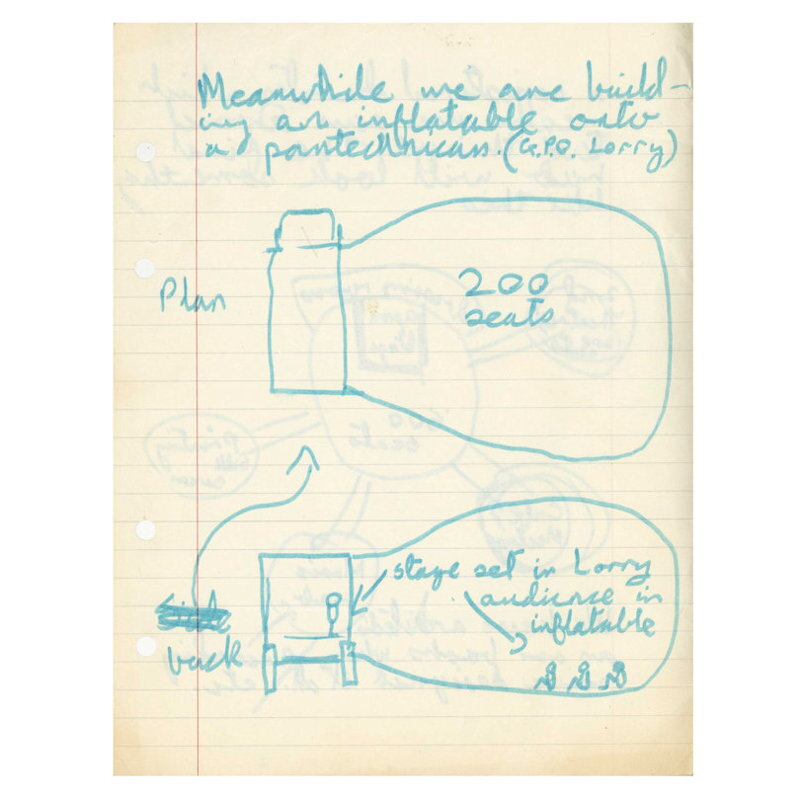 Meanwhile we are build-
ing an inflatable onto
a pantechnican. (G.P.O. Lorry)
Plan
200
seats
stage set in Lorry
audience in
inflatable
back